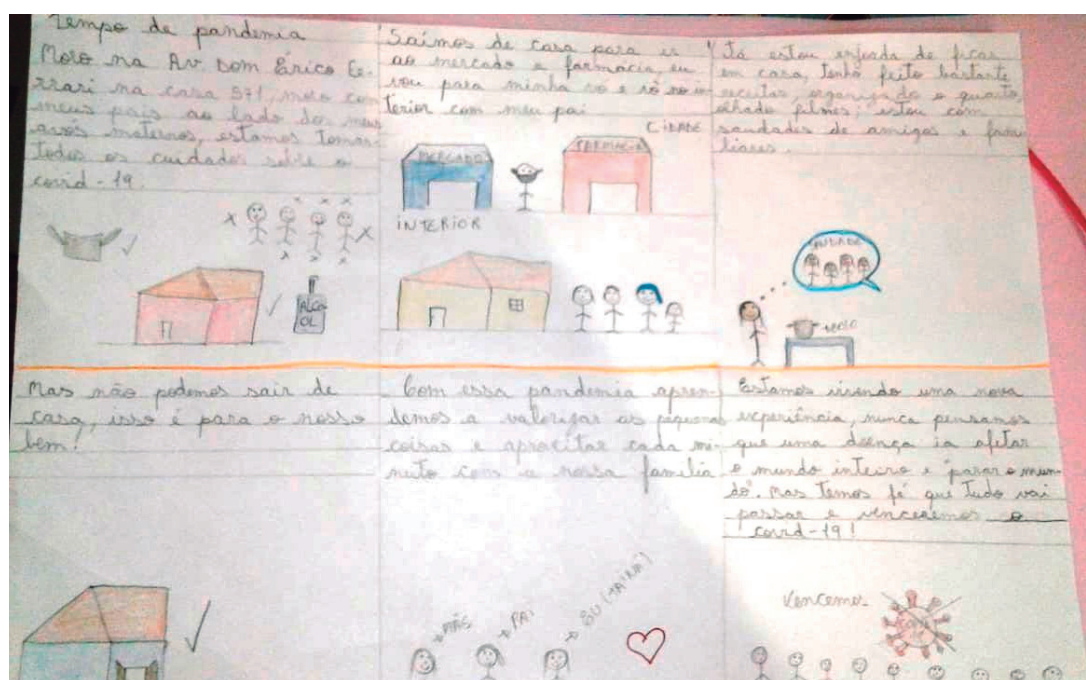 Tempo de pandemia
Moro na Av. Dom Érico Fe-
rrari na casa 971, moro com
meus pais ao lado dos meus
avós maternos, estamos toman-
todos os cuidados sobre o
covid-19.
ALCO
OL
Saímos de casa para ir
ao mercado e farmácia, eu
vou para minha vó e vô no in-
terior com meu pai
CIDADE
MERCADO
FARMACIA
INTERIOR
Já estou enjoada de ficar
em casa, tenho feito bastante
receitas, organizado o quarto,
olhado filmes, estou com
saudades de amigos e fami-
liares.
SAUDADE
Mas não podemos sair de
casa, isso é para o nosso
bem!
Com essa pandemia apren-
demos a valorizar as pequenas
coisas e aproveitar cada mi-
nuto com a nossa família
MÃE
PAI
EU (TAINÁ)
Estamos vivendo uma nova
experiência, nunca pensamos
que uma doença ia afetar
o mundo inteiro e "parar o mun-
do". Mas temos fé que tudo vai
passar e venceremos o
covid-19!
Vencemos